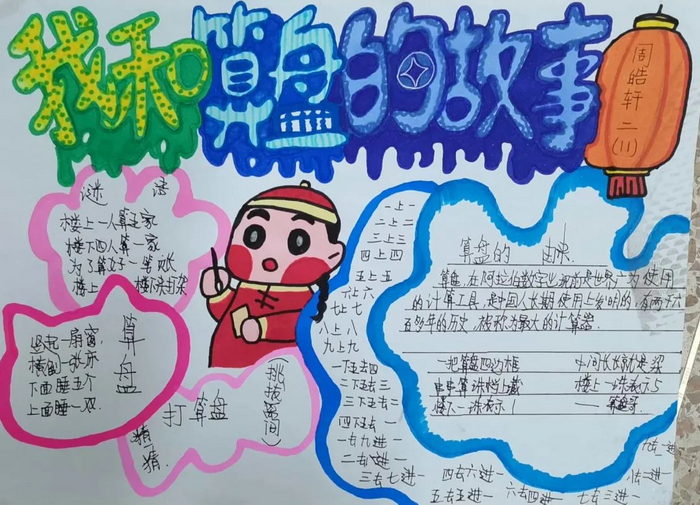 我和算盘的故事
周皓轩
二(11)
谜 语
楼上一人算一家
楼下四人算一家
为了算
楼上 楼下
算盘
竖起一扇窗,
横倒一张床
下面睡五个
上面睡一双.
打算盘
猜猜
(挑拨离间)
一上一
二上二
三上三
四上四
五上五
六上六
七上七
八上八
九上九
一下五去四
二下五去三
三下五去二
四下五去一
一去九进一
二去八进一
三去七进一
四去六进一
五去五进一
六去四进一
七去三进一
八去二进一
九去一进一
算盘的 由来
算盘,在阿拉伯数字出现前是世界广为使用
的计算工具,是中国人长期使用上发明的,有两千六
百多年的历史,被称为最大的计算器.
一把算盘四边框 中间长长的是梁
串串算珠档上藏 楼上一珠表示5
楼下一珠表示1 ——算盘歌